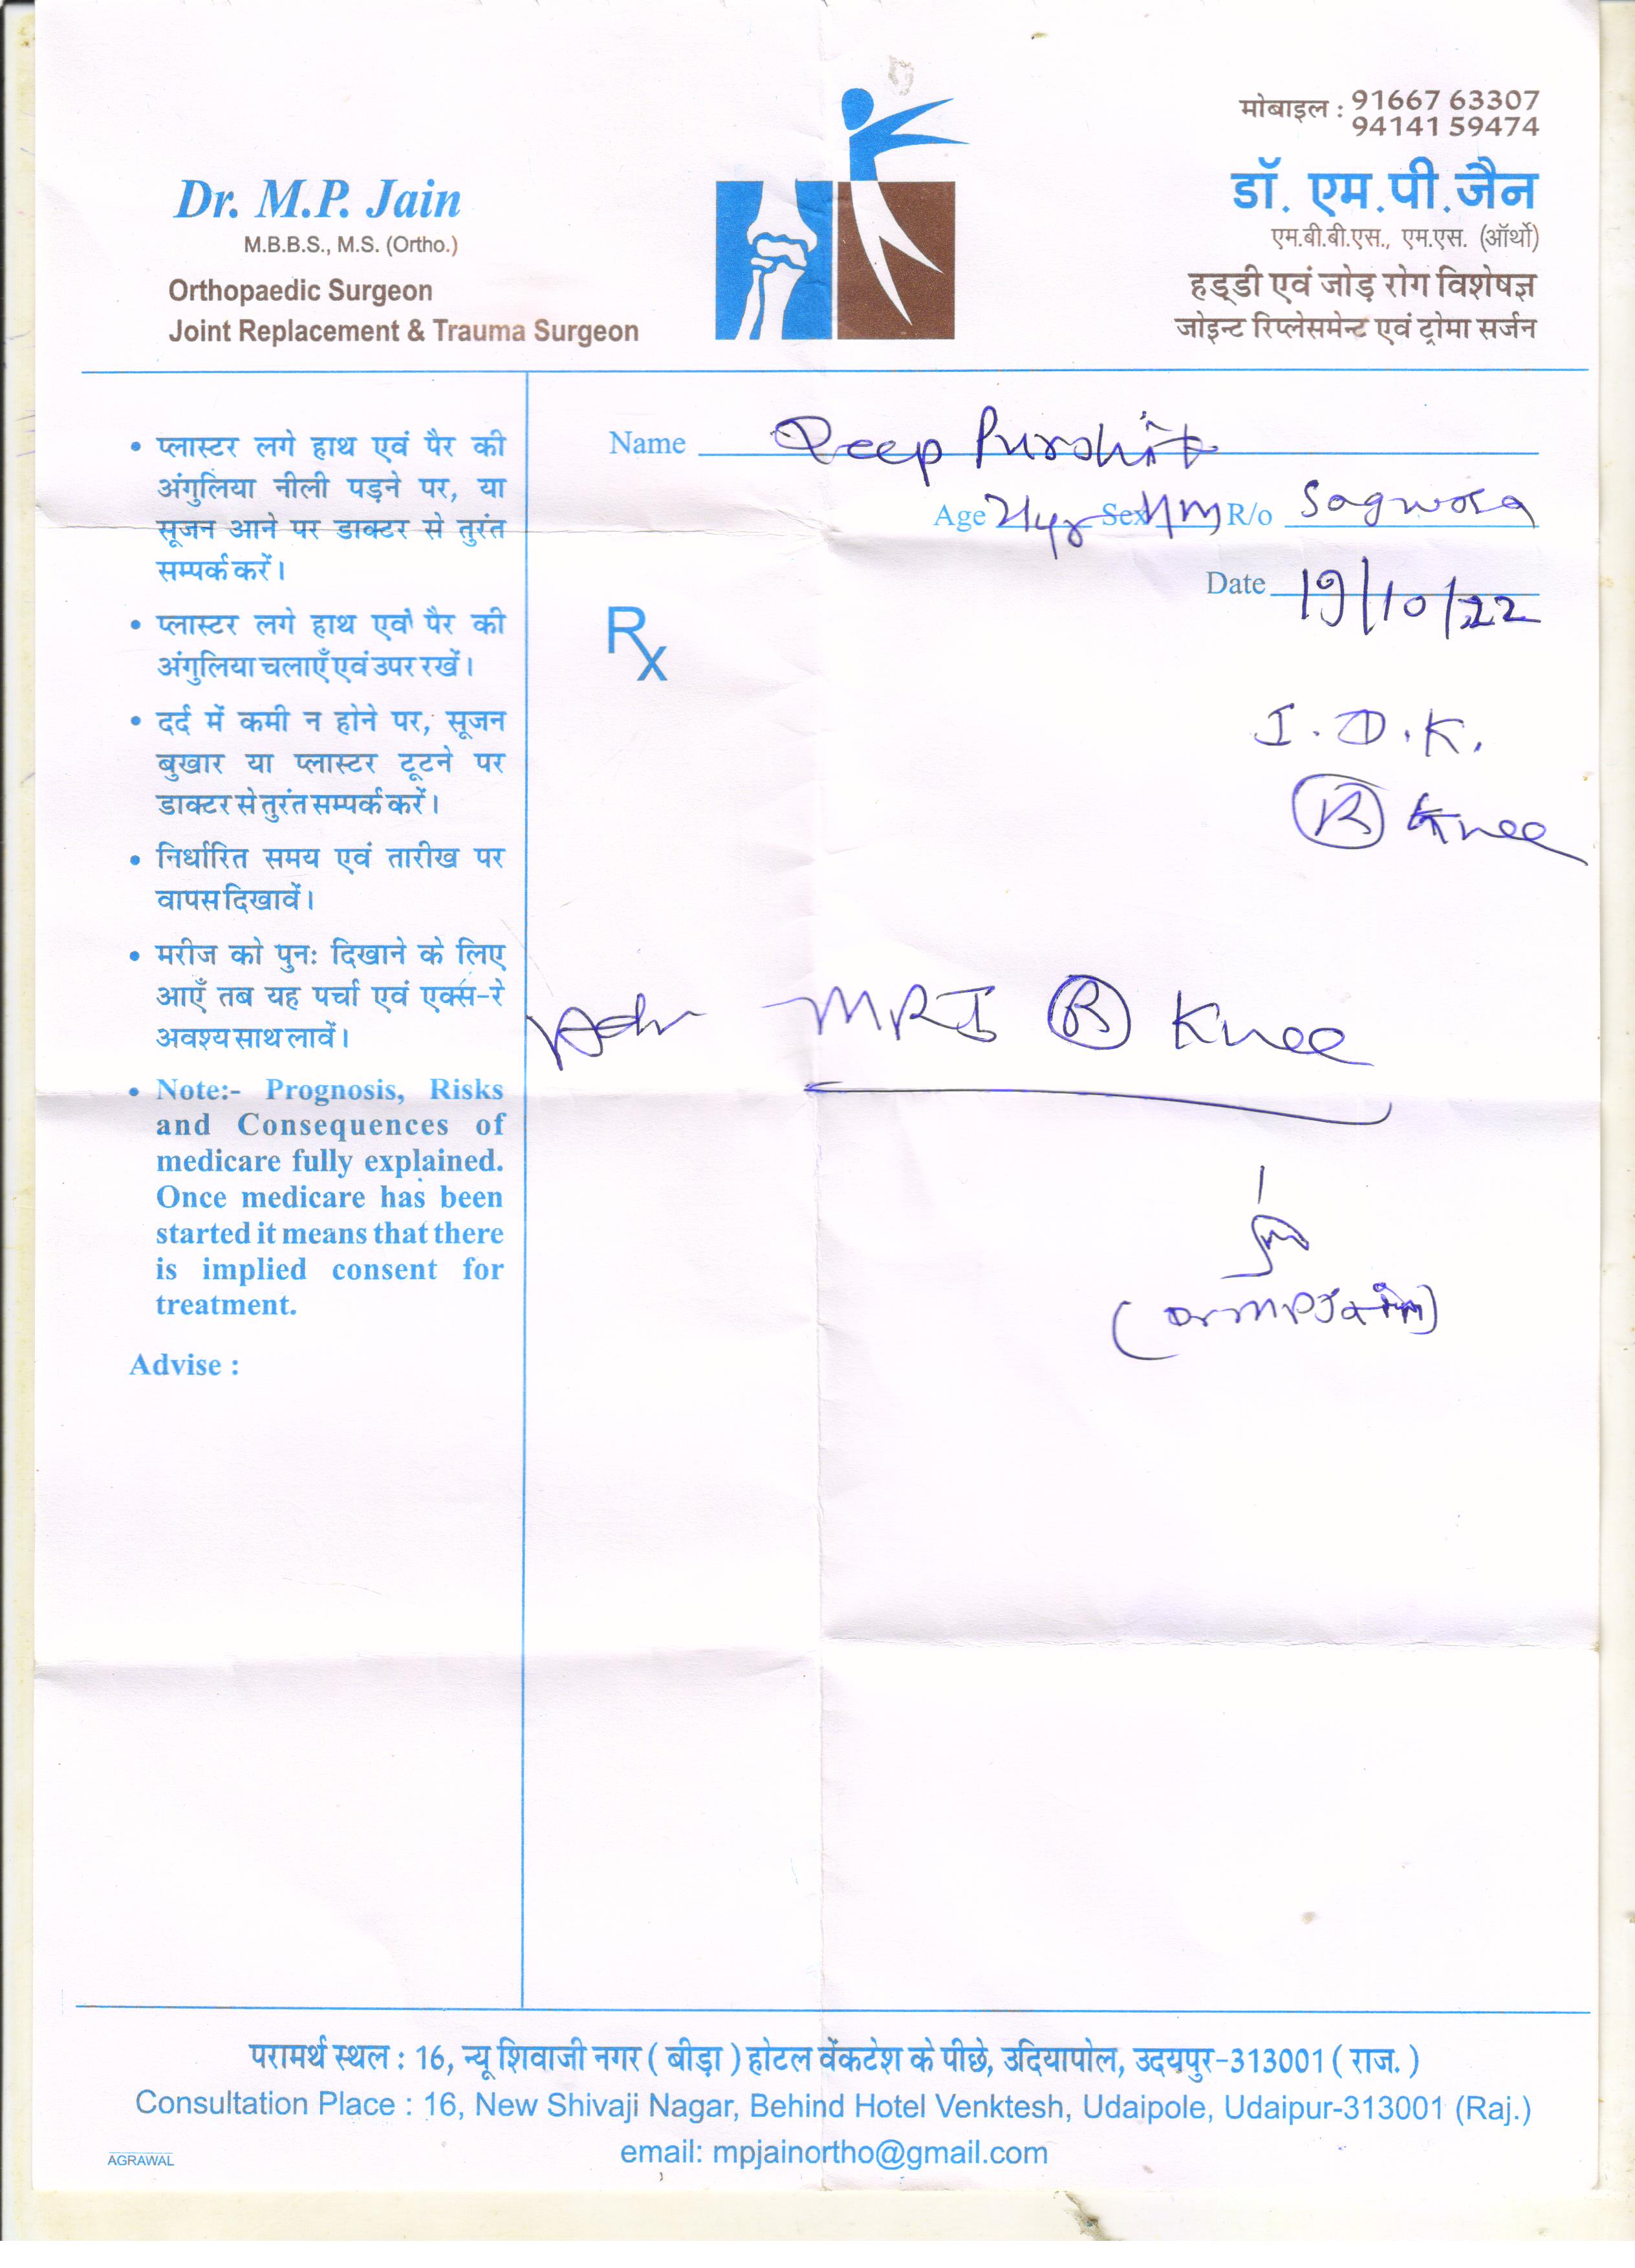 मोबाइल : 91667 63307
94141 59474
Dr. M.P. Jain
M.B.B.S., M.S. (Ortho.)
Orthopaedic Surgeon
Joint Replacement & Trauma Surgeon
डॉ. एम.पी.जैन
एम.बी.बी.एस., एम.एस. (ऑर्थो)
हड्डी एवं जोड़ रोग विशेषज्ञ
जोइन्ट रिप्लेसमेन्ट एवं ट्रोमा सर्जन
• प्लास्टर लगे हाथ एवं पैर की
अंगुलिया नीली पड़ने पर, या
सूजन आने पर डाक्टर से तुरंत
सम्पर्क करें।
• प्लास्टर लगे हाथ एवं पैर की
अंगुलिया चलाएँ एवं उपर रखें।
• दर्द में कमी न होने पर, सूजन
बुखार या प्लास्टर टूटने पर
डाक्टर से तुरंत सम्पर्क करें।
• निर्धारित समय एवं तारीख पर
वापस दिखावें।
• मरीज को पुनः दिखाने के लिए
आएँ तब यह पर्चा एवं एक्स-रे
अवश्य साथ लावें।
• Note:- Prognosis, Risks
and Consequences of
medicare fully explained.
Once medicare has been
started it means that there
is implied consent for
treatment.
Advise :
Name Deep Purohit
Age 21yr Sex M R/o Sagwara
Date 19/10/22
Rx
I.D.K.
(R) Knee
Adv MRI (R) Knee
(Dr MP Jain)
परामर्थ स्थल : 16, न्यू शिवाजी नगर ( बीड़ा ) होटल वेंकटेश के पीछे, उदियापोल, उदयपुर-313001 ( राज. )
Consultation Place : 16, New Shivaji Nagar, Behind Hotel Venktesh, Udaipole, Udaipur-313001 (Raj.)
email: mpjainortho@gmail.com
AGRAWAL